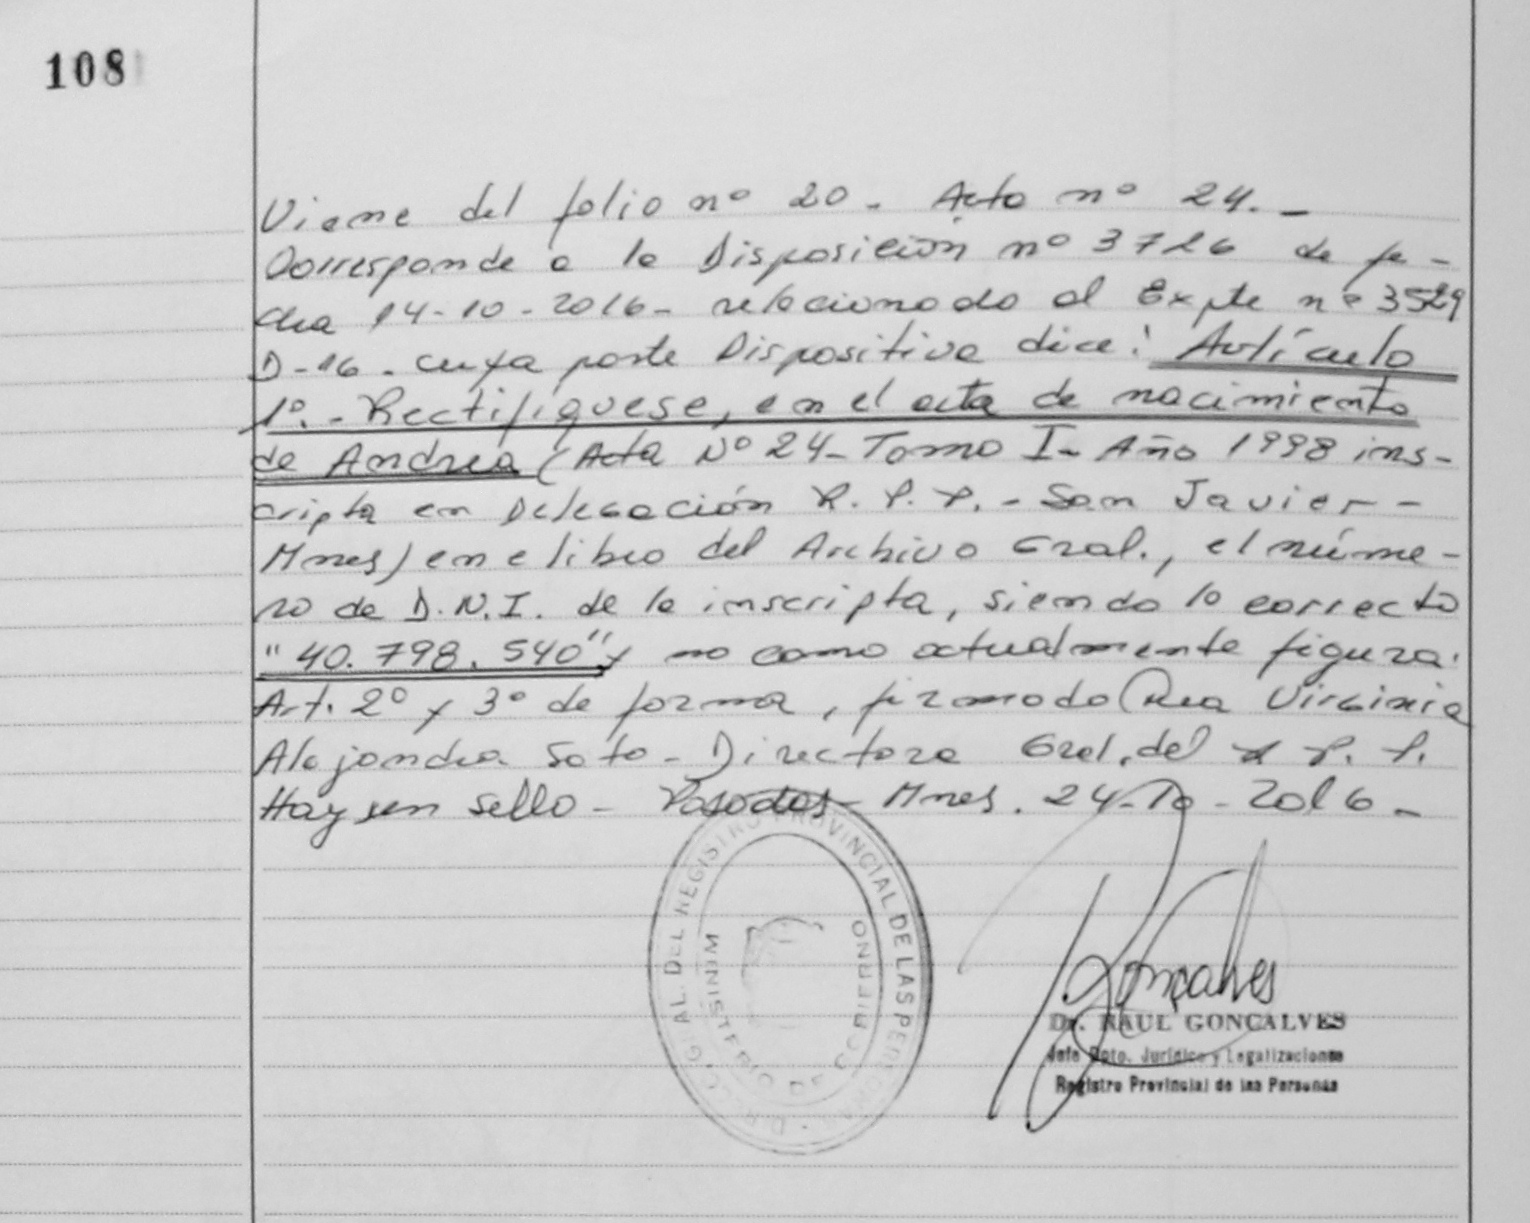 108
Viene del folio nº 20 - Acta nº 24. -
Corresponde a la Disposición nº 3726 de fe-
cha 14-10-2016- relacionado al Expte nº 3529
D-16. cuya parte Dispositiva dice: Artículo
1º.- Rectifíquese, en el acta de nacimiento
de Andrea (Acta Nº 24- Tomo I- Año 1998 ins-
cripta en Delegación R. P. P. - San Javier -
Mnes) en el libro del Archivo Gral., el núme-
ro de D.N.I. de la inscripta, siendo lo correcto
"40.798.540" y no como actualmente figura.
Art. 2º y 3º de forma, firmado Dra Virginia
Alejandra Soto - Directora Gral. del R. P. P.
Hay un sello - Posadas - Mnes. 24-10-2016 -
DIRECC. GRAL. DEL REGISTRO PROVINCIAL DE LAS PERSONAS
MINISTERIO DE GOBIERNO
Gonçalves
Dr. RAUL GONCALVES
Jefe Dpto. Jurídico y Legalizaciones
Registro Provincial de las Personas